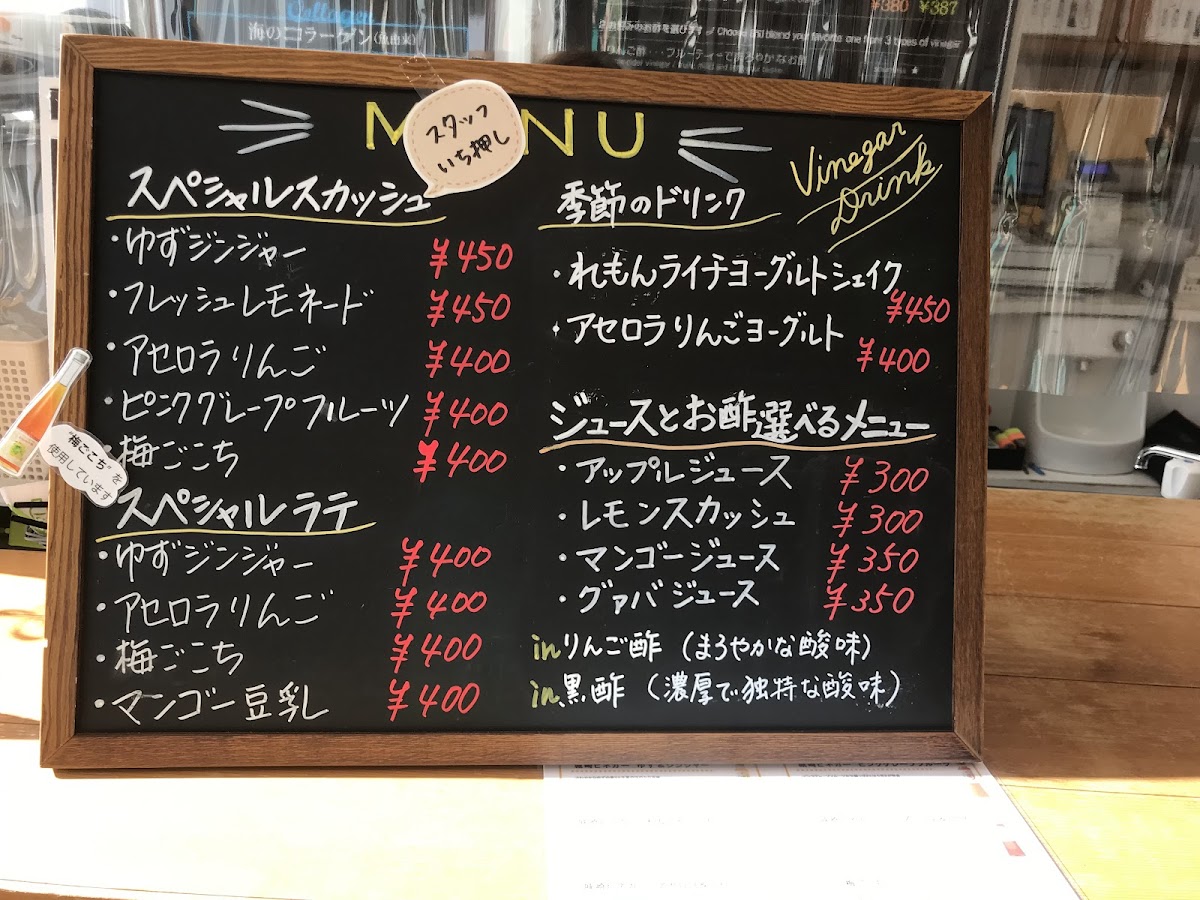 Collagen
海のコラーゲン(魚由来)
¥380 ¥387
MENU
スタッフ
いち押し
Vinegar
Drink
スペシャルスカッシュ
・ゆずジンジャー ¥450
・フレッシュレモネード ¥450
・アセロラりんご ¥400
・ピンクグレープフルーツ ¥400
・梅ごこち ¥400
"梅ごこち"を
使用しています
スペシャルラテ
・ゆずジンジャー ¥400
・アセロラりんご ¥400
・梅ごこち ¥400
・マンゴー豆乳 ¥400
季節のドリンク
・れもんライチヨーグルトシェイク
¥450
・アセロラりんごヨーグルト
¥400
ジュースとお酢選べるメニュー
・アップルジュース ¥300
・レモンスカッシュ ¥300
・マンゴージュース ¥350
・グァバジュース ¥350
inりんご酢 (まろやかな酸味)
in黒酢 (濃厚で独特な酸味)